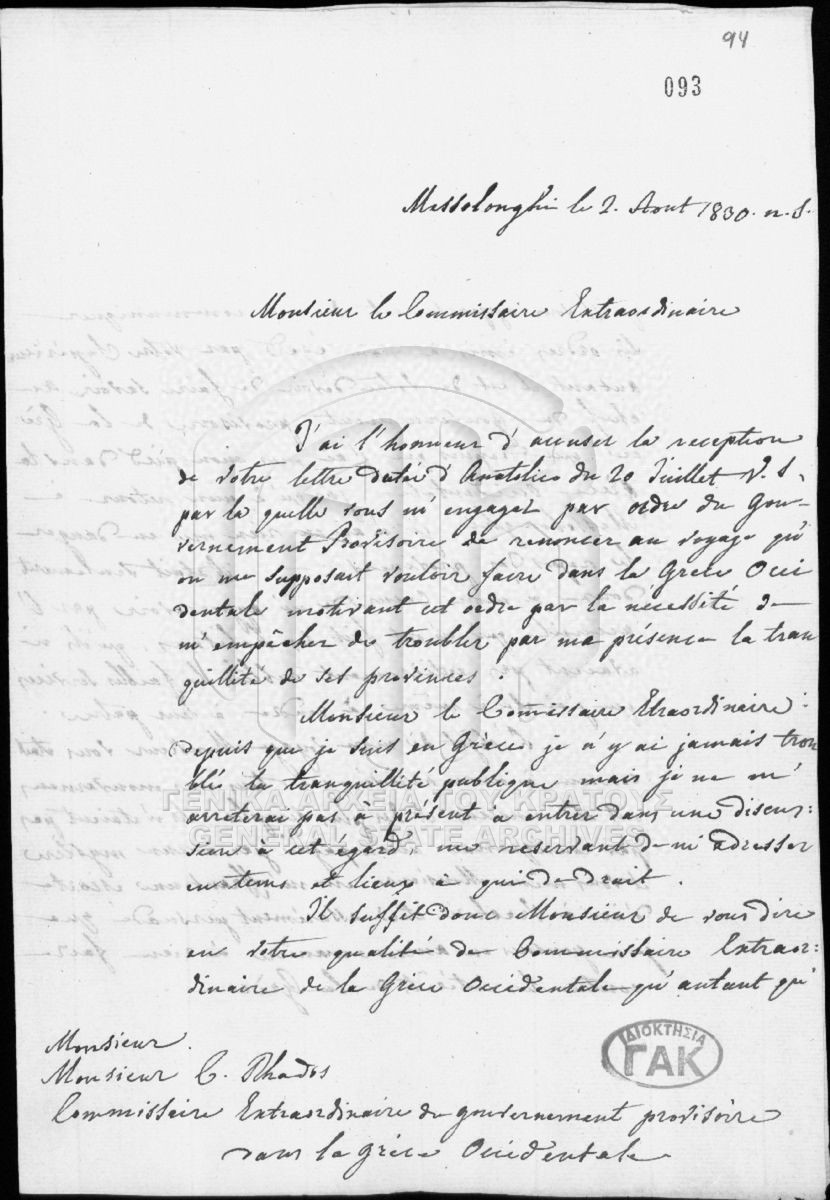 94
093
Messolonghi le 2. Aout 1830. n. S.
Monsieur le Commissaire Extraordinaire
J'ai l'honneur d'accuser la reception
de votre lettre datée d'Anatolico du 20 Juillet V. S.
par la quelle vous m'engagez par ordre du Gou-
vernement Provisoire de renoncer au voyage qu'
on me supposait vouloir faire dans la Grèce Occi
dentale motivant cet ordre par la nécessité de
m'empêcher de troubler par ma présence la tran
quillité de ses provinces.
Monsieur le Comissaire Etraordinaire:
depuis que je suis en Grèce je n'y ai jamais trou
blé la tranquillité publique mais je ne m'
arreterai pas à présent à entrer dans une discus:
sion à cet égard, me reservant de m'adresser
en tems et lieux à qui de droit.
Il suffit donc Monsieur de vous dire
en votre qualité de Commissaire Extraor:
dinaire de la Grèce Occidentale qu'autant qu'
Monsieur.
Monsieur C. Rhados
Commissaire Extraordinaire du gouvernement provisoire
dans la grèce Occidentale
ΙΔΙΟΚΤΗΣΙΑ
ΓΑΚ
ΓΕΝΙΚΑ ΑΡΧΕΙΑ ΤΟΥ ΚΡΑΤΟΥΣ
GENERAL STATE ARCHIVES